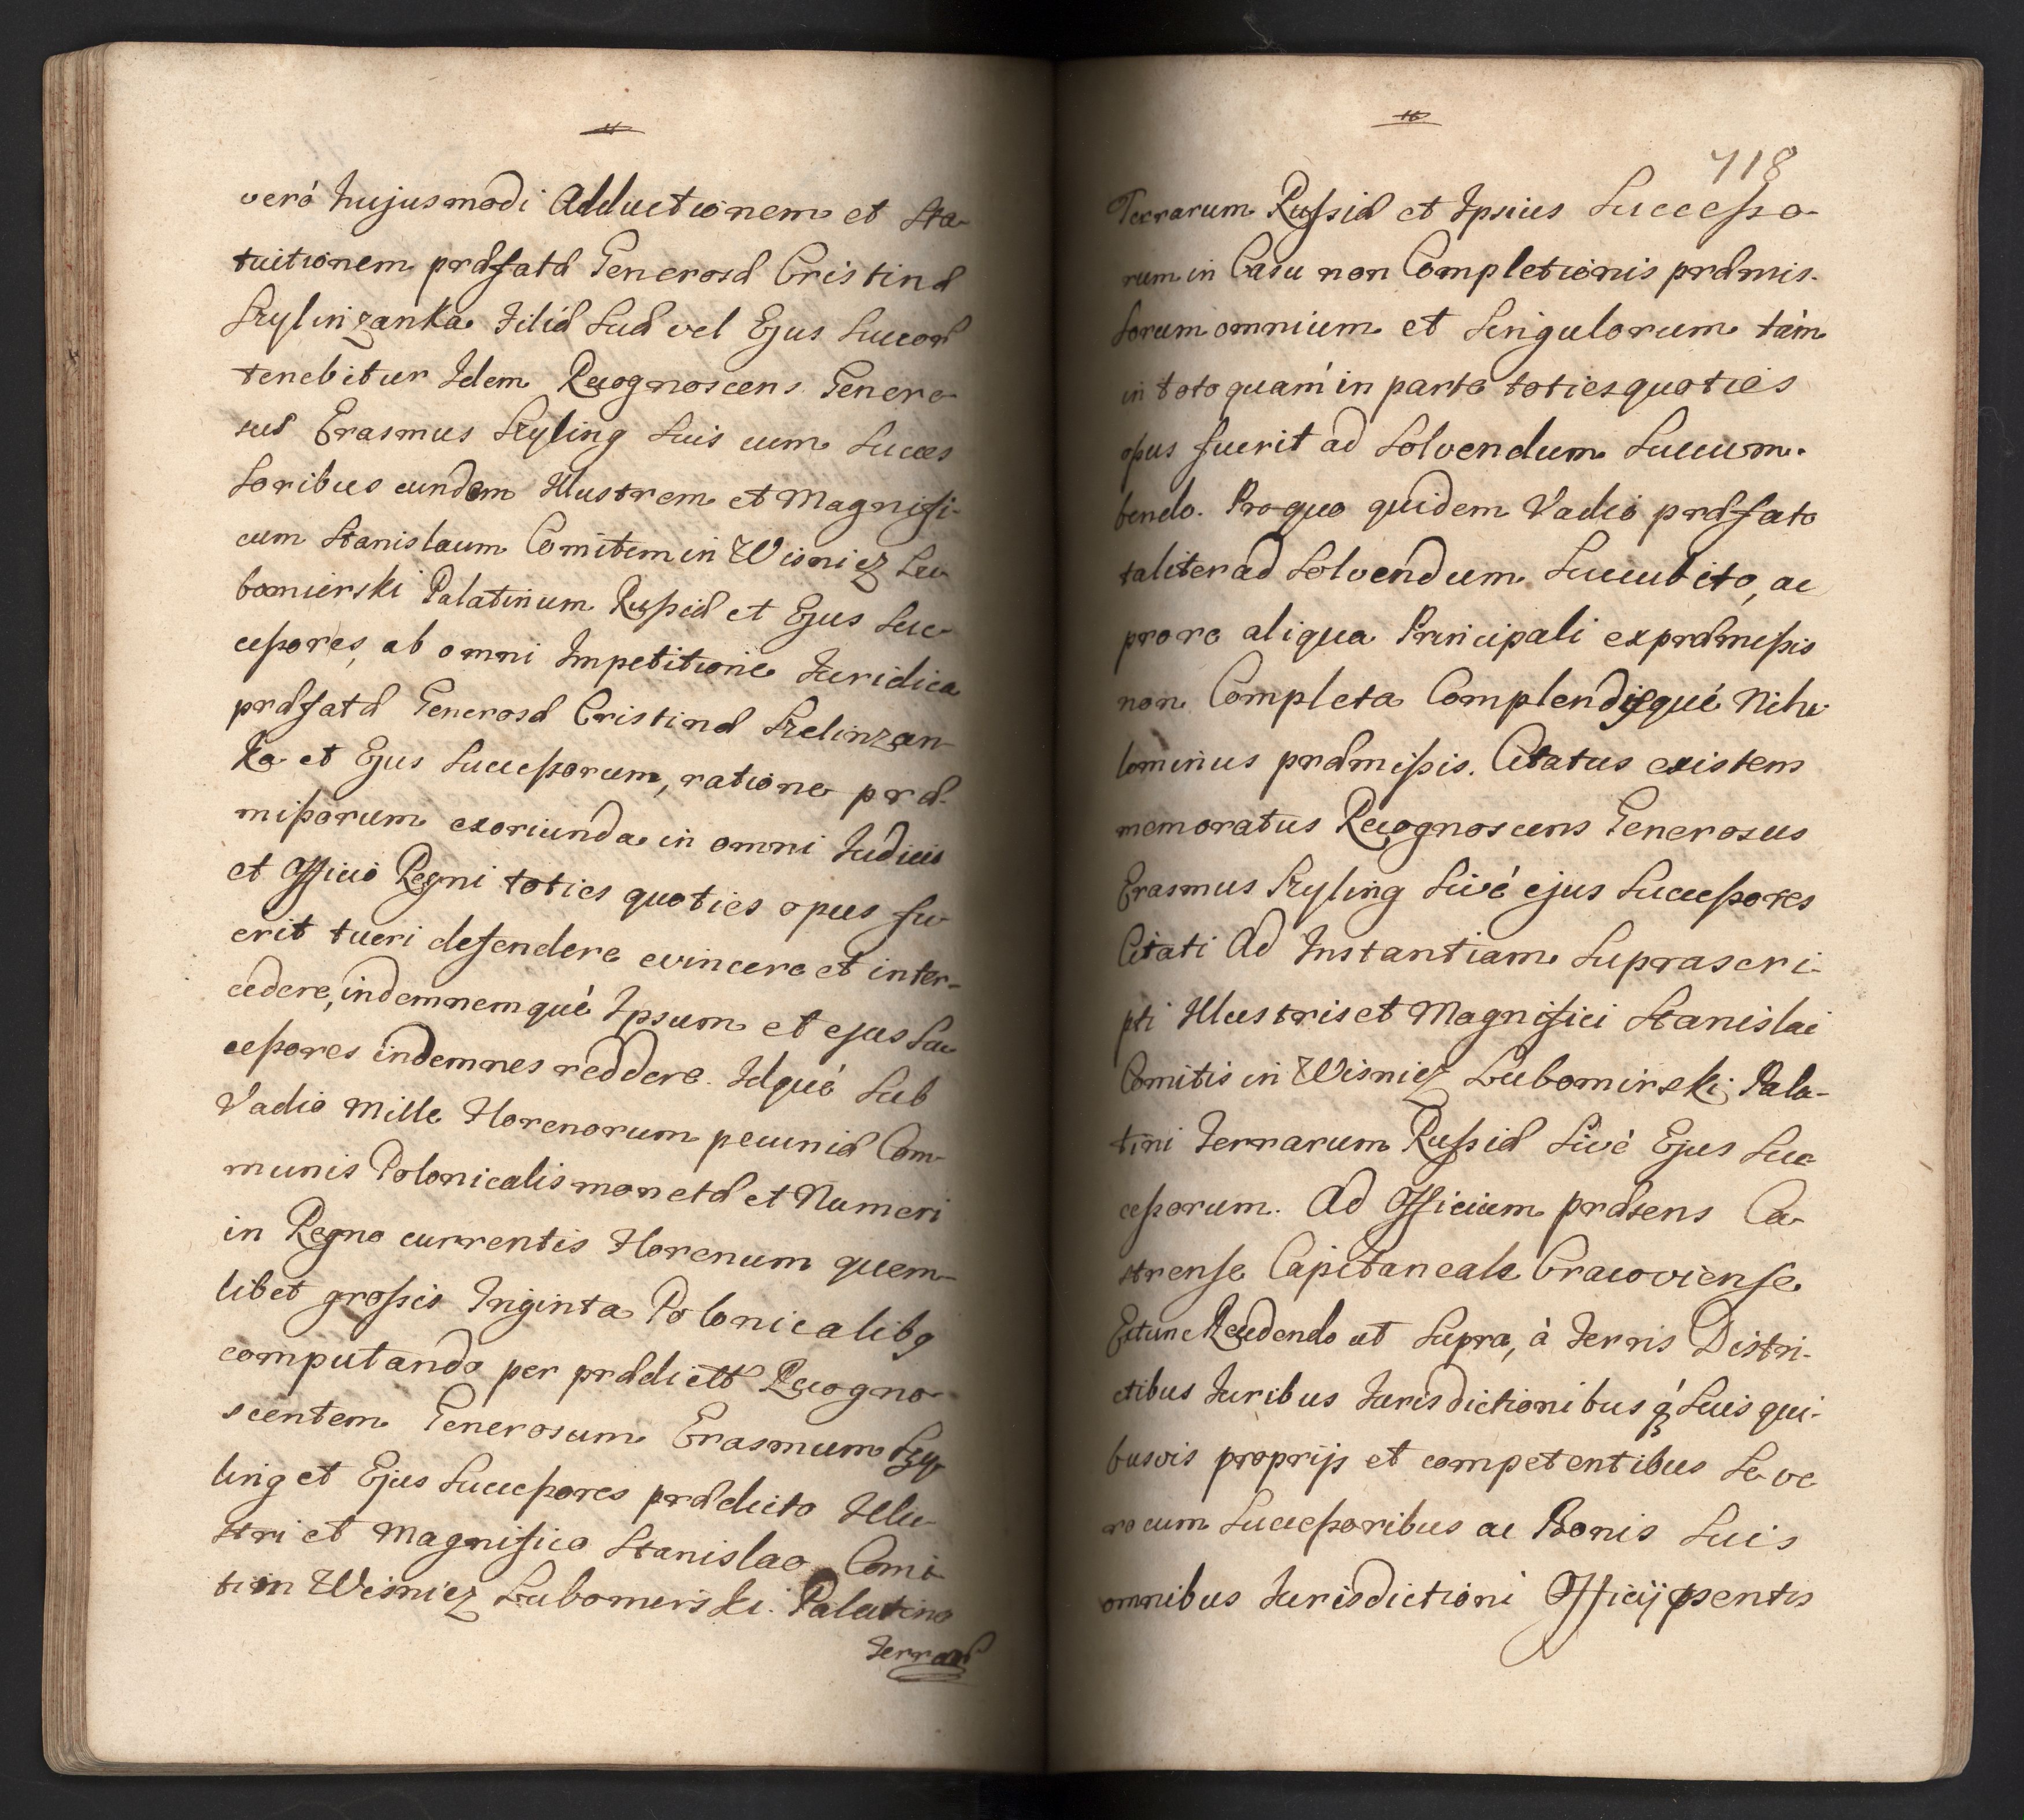 verò hujusmodi Adductionem et Sta-
tuitionem præfatæ Generosæ Cristinæ
Szylinzanka Filiæ Suæ vel Ejus Succor
tenebitur Idem Recognoscens Genero-
sus Erasmus Szyling Suis cum Succes
Soribus eundem Illustrem et Magnifi-
cum Stanislaum Comitem in Wisnicz Lu-
bomierski Palatinum Russiæ et Ejus Suc-
cessores, ab omni Impetitione Juridica
præfatæ Generosæ Cristinæ Szelinzan-
ka et Ejus Successorum, ratione præ-
missorum exoriunda in omni Judicio
et Officio Regni toties quoties opus fu-
erit tueri defendere evincere et inter-
cedere, indemnemquè Ipsum et ejus Suc
cessores indemnes reddere. Idquè Sub
Vadio Mille Florenorum pecuniæ Com-
munis Polonicalis monetæ et Numeri
in Regno currentis Florenum quem-
libet grossis Triginta Polonicalibq
computando per prædictt Recogno-
scentem Generosum Erasmum Szy-
ling et Ejus Successores prædicto Illu-
stri et Magnifico Stanislao Comi-
ti in Wisnicz Lubomirski. Palatino
Terrar
718
Terrarum Russiæ et Ipsius Successo-
rum in Casu non Completionis præmis-
Sorum omnium et Singulorum tàm
in toto quàm in parte totiesquoties
opus fuerit ad Solvendum Succum-
bendo. Pro quo quidem Vadio præfato
taliter ad Solvendum Succubito, ac
pro re aliqua Principali ex præmissis
non Completa Complendisquè Nihi-
lominus præmissis. Citatus existens
memoratus Recognoscens Generosus
Erasmus Szyling Sivè ejus Successores
Citati Ad Instantiam Suprascri-
pti Illustris et Magnifici Stanislai
Comitis in Wisnicz Lubomirski Pala-
tini Terrarum Russiæ Sivè Ejus Suc-
cessorum. Ad Officium præsens Ca-
strense Capitaneale Cracoviense
Extunc Recedendo ut Supra, à Terris Distri-
ctibus Juribus Jurisdictionibus q́ Suis qui-
busvis proprijs et competentibus Se ve
ro cum Successoribus ac Bonis Suis
omnibus Jurisdictioni Officij psentis